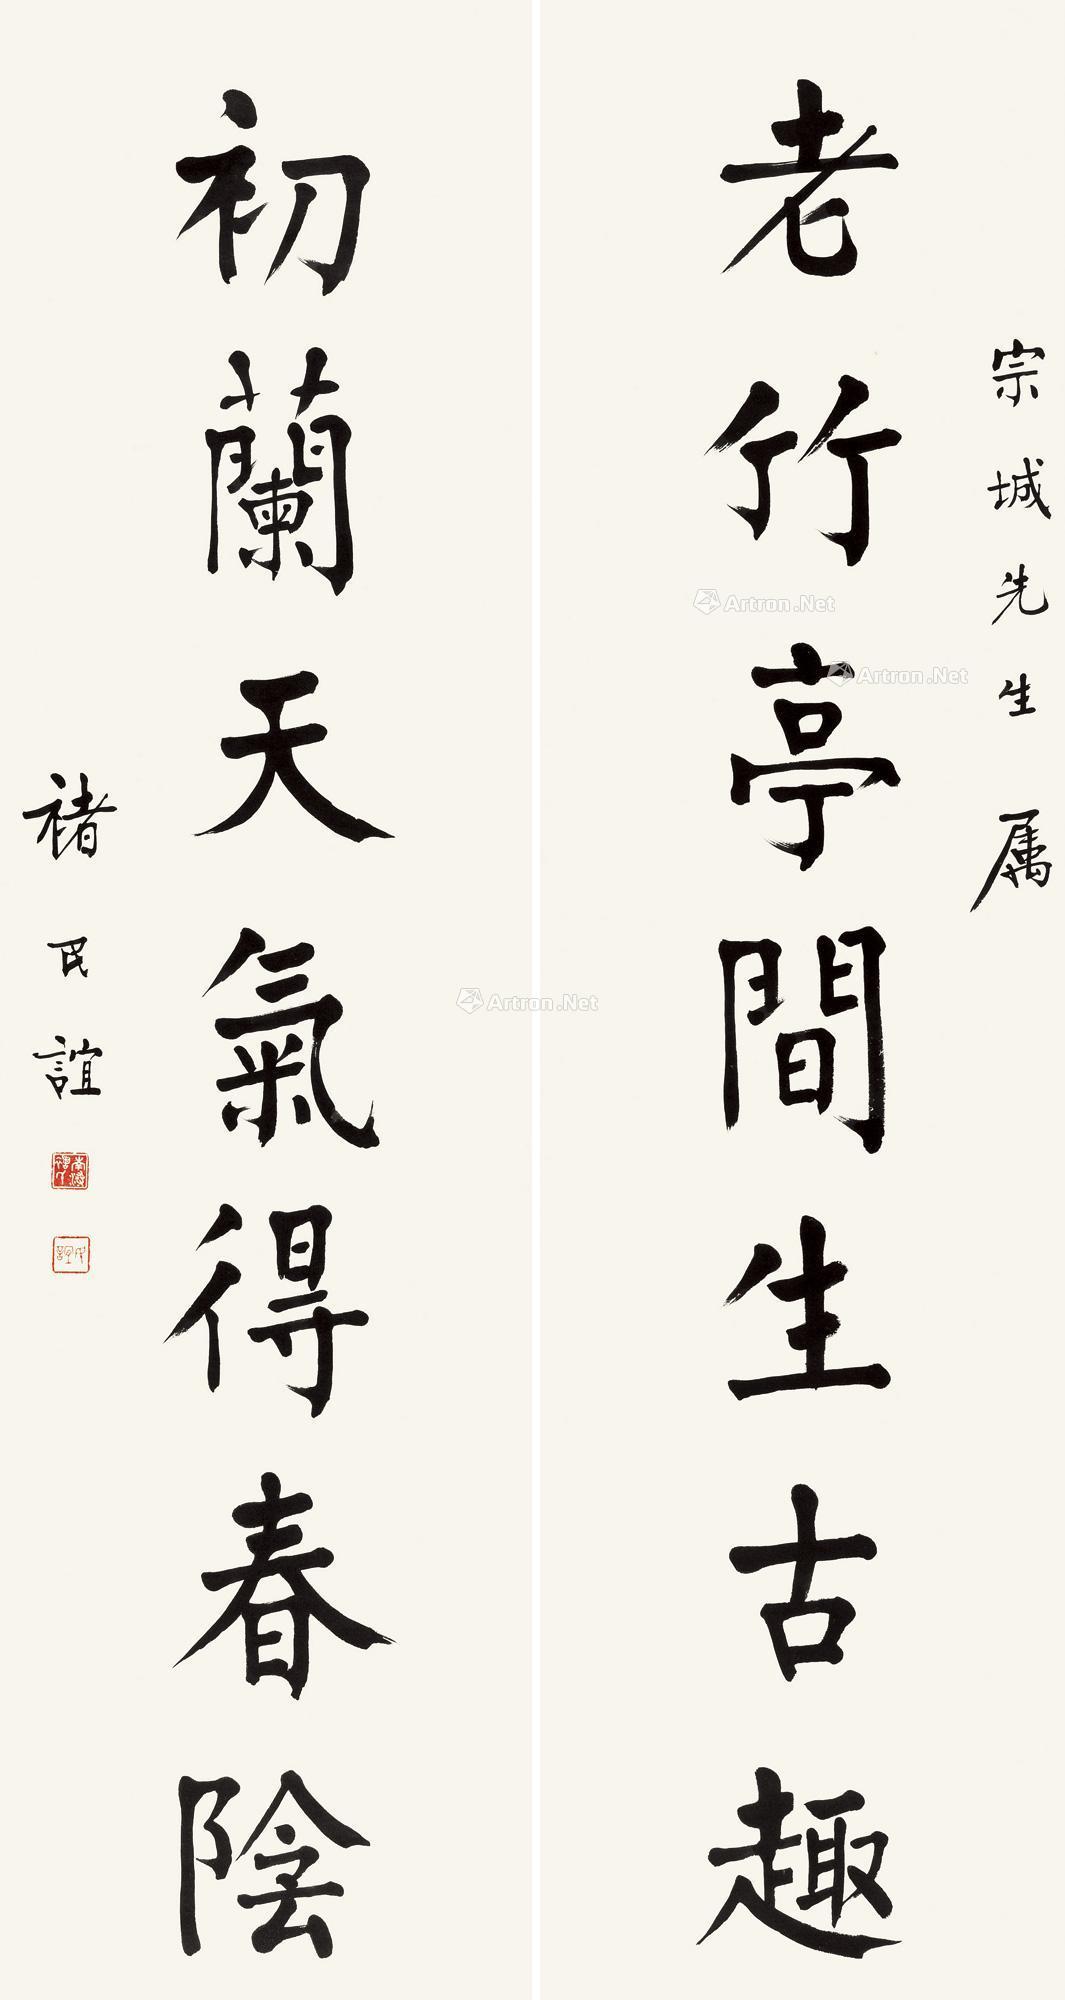 宗城先生属
老竹亭間生古趣
初蘭天氣得春陰
褚民誼
Artron.Net
Artron.Net
Artron.Net